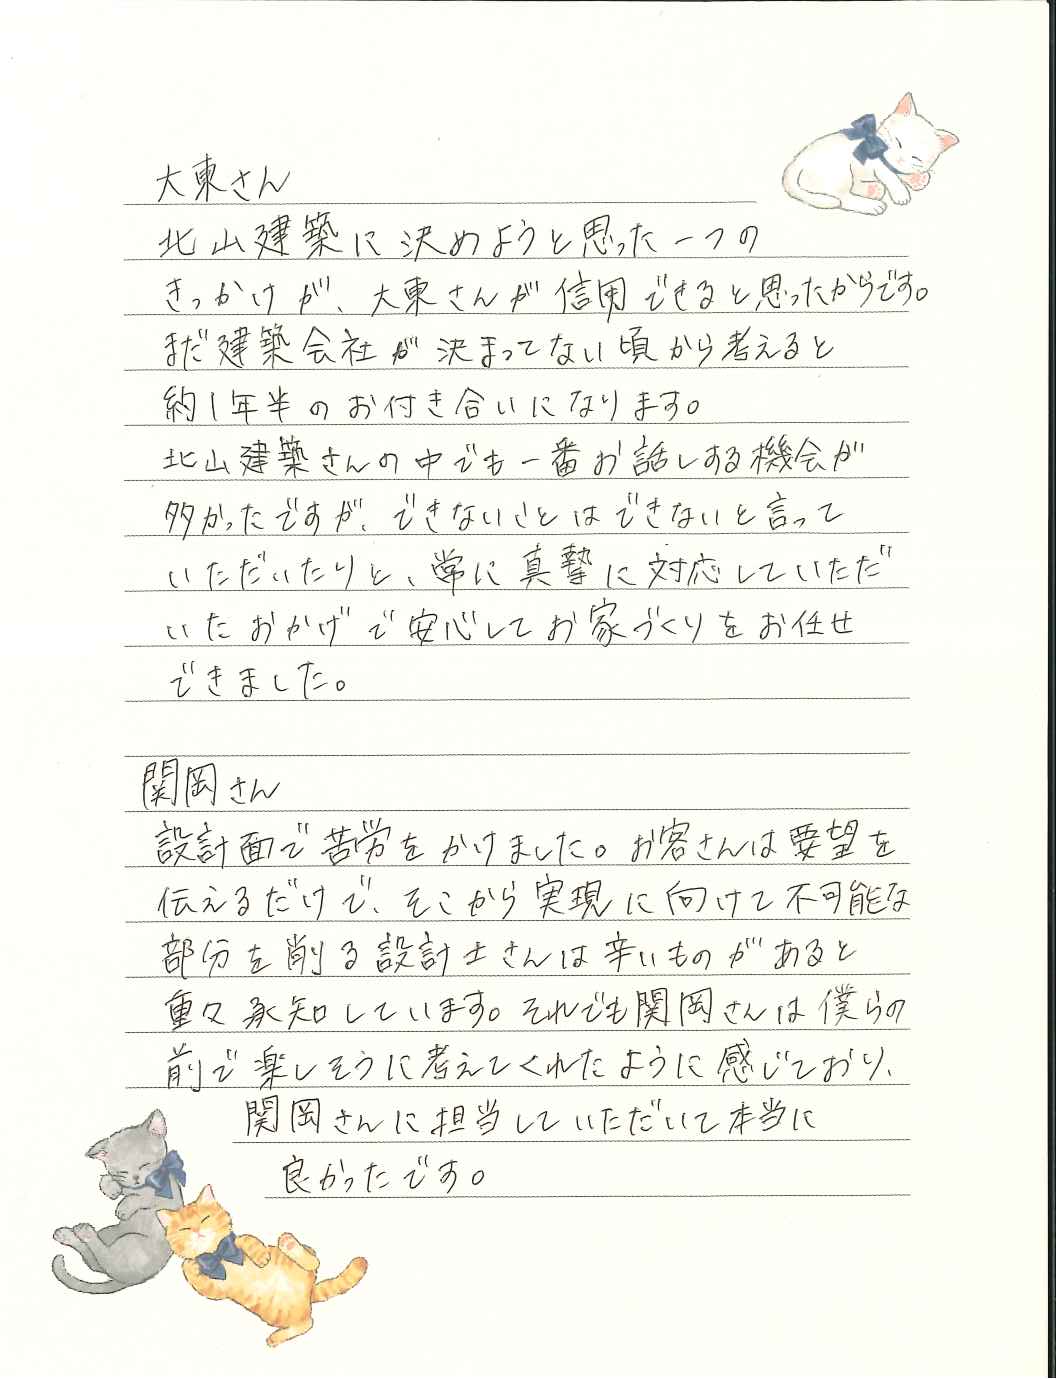 大東さん
北山建築に決めようと思った一つの
きっかけが、大東さんが信用できると思ったからです。
まだ建築会社が決まってない頃から考えると
約1年半のお付き合いになります。
北山建築さんの中でも一番お話しする機会が
多かったですが、できないことはできないと言って
いただいたりと、常に真摯に対応していただ
いたおかげで安心してお家づくりをお任せ
できました。
関岡さん
設計面で苦労をかけました。お客さんは要望を
伝えるだけで、そこから実現に向けて不可能な
部分を削る設計士さんは辛いものがあると
重々承知しています。それでも関岡さんは僕らの
前で楽しそうに考えてくれたように感じており、
関岡さんに担当していただいて本当に
良かったです。